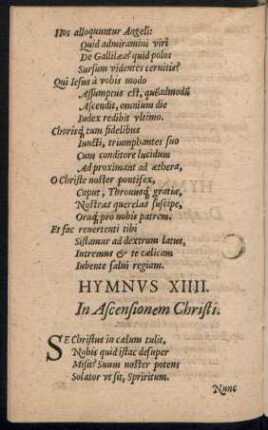 Nos alloquuntur Angeli:
Quid admiramini viri
De Gallilææ? quid polos
Sursum videntes cernitis?
Qui Iesus à vobis modo
Assumptus est, quẽadmodũ
Ascendit, omnium die
Iudex redibit vltimo.
Chorisq; tum fidelibus
Iuncti, triumphantes suo
Cum conditore lucidum
Ad proximant ad æthera,
O Christe noster pontifex,
Caput, Thronusq; gratiæ,
Nostras querelas suscipe,
Oraq; pro nobis patrem.
Et fac reuertenti tibi
Sistamur ad dextrum latus,
Intremus & te cælicam
Iubente salui regiam.
HYMNVS XIIII.
In Ascensionem Christi.
SE Christus in cælum tulit,
Nobis quid istac desuper
Misit? Suum noster potens
Solator vt sit, Spriritum.
Nunc